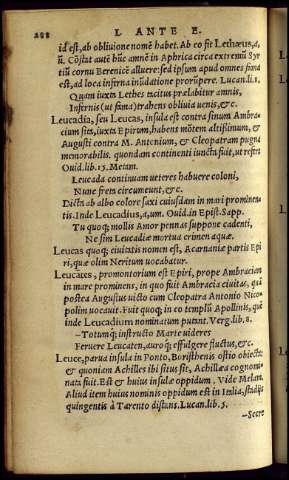 288 L ANTE E.
id est, ab obliuione nomē habet. Ab eo fit Lethæus, a,
ū. Cōstat autē hūc amnē in Aphrica circa extremū Syr
tiū cornu Berenicē alluere: sed ipsum apud omnes fama
est, ad loca inferna inūdatione prorūpere. Lucan. li. 1.
Quam iuxta Lethes tacitus prælabitur amnis,
Infernis (ut fama) trahens obliuia uenis, &c.
Leucadia, seu Leucas, insula est contra sinum Ambra
cium sita, iuxta Epirum, habens mōtem altissimum, &
Augusti contra M. Antonium, & Cleopatram pugna
memorabilis. quondam continenti iuncta fuit, ut refert
Ouid. lib. 15. Metam.
Leucada continuam ueteres habuere coloni,
Nunc freta circumeunt, &c.
Dicta ab albo colore saxi cuiusdam in mari prominen
tis. Inde Leucadius, a, um. Ouid. in Epist. Sapp.
Tu quoq; mollis Amor pennas suppone cadenti,
Ne sim Leucadiæ mortua crimen aquæ.
Leucas quoq; ciuitatis nomen est, Acarnaniæ partis Epi
ri, quæ olim Neritum uocabatur.
Leucates, promontorium est Epiri, prope Ambraciam
in mare prominens, in quo fuit Ambracia ciuitas, quā
postea Augustus uicto cum Cleopatra Antonio Nico
polim uocauit. Fuit quoq; in eo templū Apollinis, quē
inde Leucadium nominatum putant. Verg. lib. 8.
—Totumq; instructo Marte uideres
Feruere Leucaten, auroq; effulgere fluctus, &c.
Leuce, parua insula in Ponto, Boristhenis ostio obiecta:
& quoniam Achilles ibi situs sit, Achillæa cognomi
nata fuit. Est & huius insulæ oppidum. Vide Melam.
Aliud item huius nominis oppidum est in Italia, stadijs
quingentis à Tarento distans. Lucan. lib. 5.
—Secre